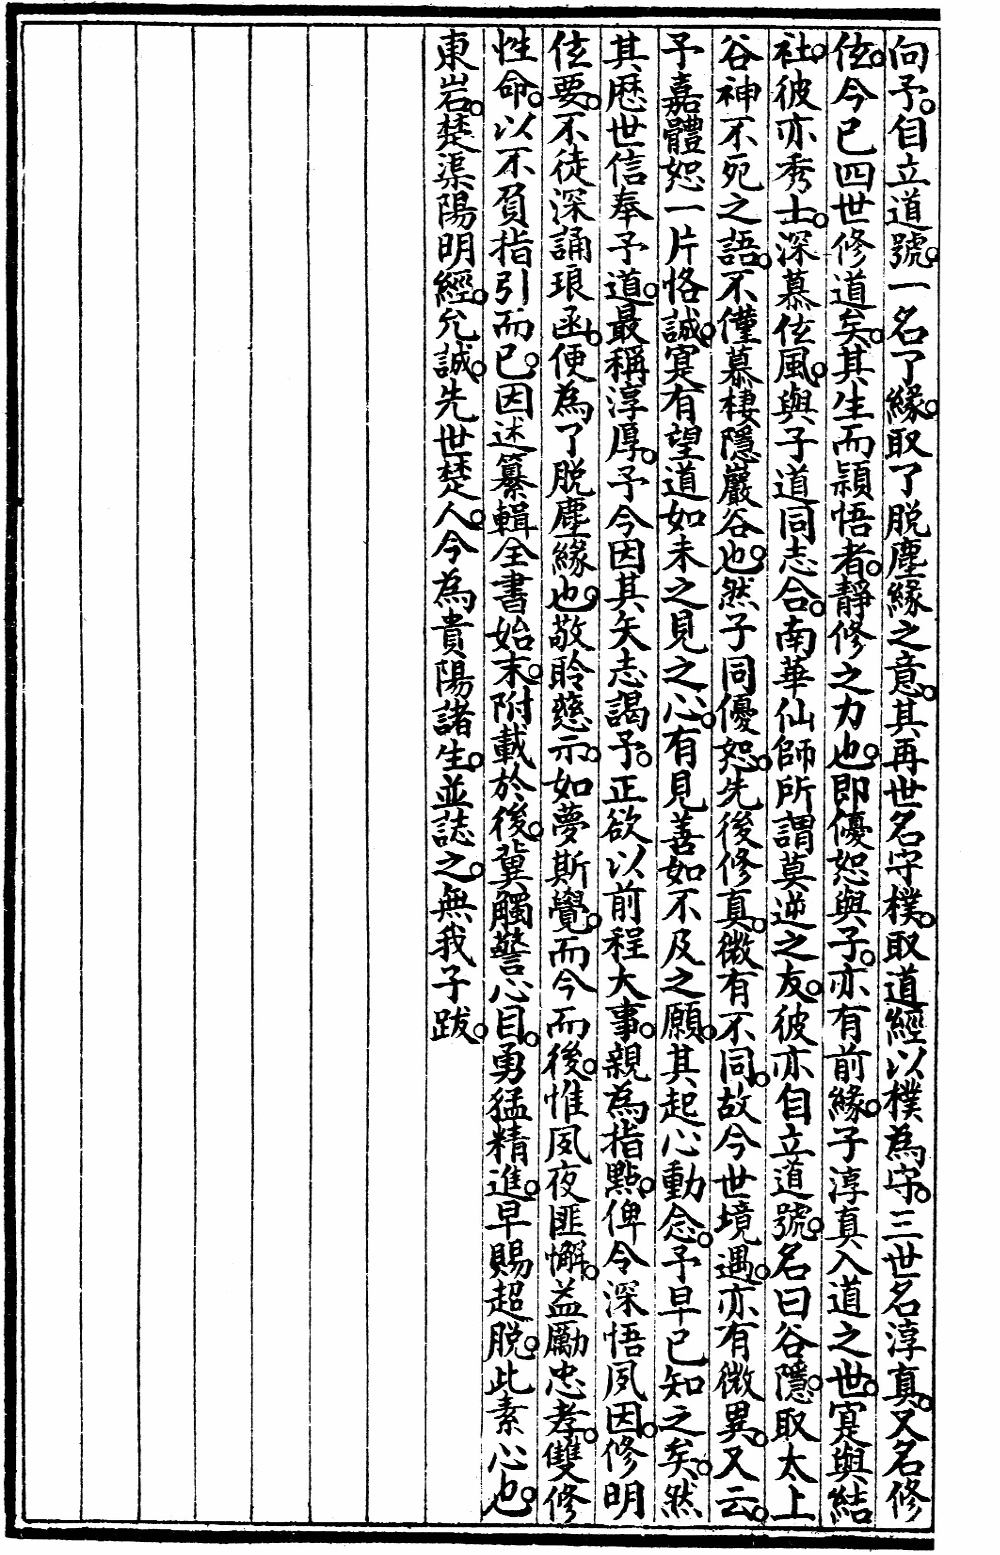 向予。自立道號。一名了緣。取了脫塵緣之意。其再世名守樸。取道經以樸為守。三世名淳真。又名修
伭。今已四世修道矣。其生而頴悟者。靜修之力也。即優恕與子。亦有前緣。子淳真入道之世。寔與結
社。彼亦秀士。深慕伭風。與子道同志合。南華仙師所謂莫逆之友。彼亦自立道號。名曰谷隱。取太上
谷神不死之語。不僅慕棲隱巖谷也。然子同優恕。先後修真。微有不同。故今世境遇。亦有微異。又云。
予嘉體恕一片恪誠。寔有望道如未之見之心。有見善如不及之願。其起心動念。予早已知之矣。然
其歷世信奉予道。最稱淳厚。予今因其矢志謁予。正欲以前程大事。親為指點。俾令深悟夙因。修明
伭要。不徒深誦琅函。便為了脫塵緣也。敬聆慈示。如夢斯覺。而今而後。惟夙夜匪懈。益勵忠孝。雙修
性命。以不負指引而已。因述纂輯全書始末。附載於後。冀觸警心目。勇猛精進。早賜超脫。此素心也。
東岩。楚渠陽明經。允誠。先世楚人。今為貴陽諸生。並誌之。無我子跋。